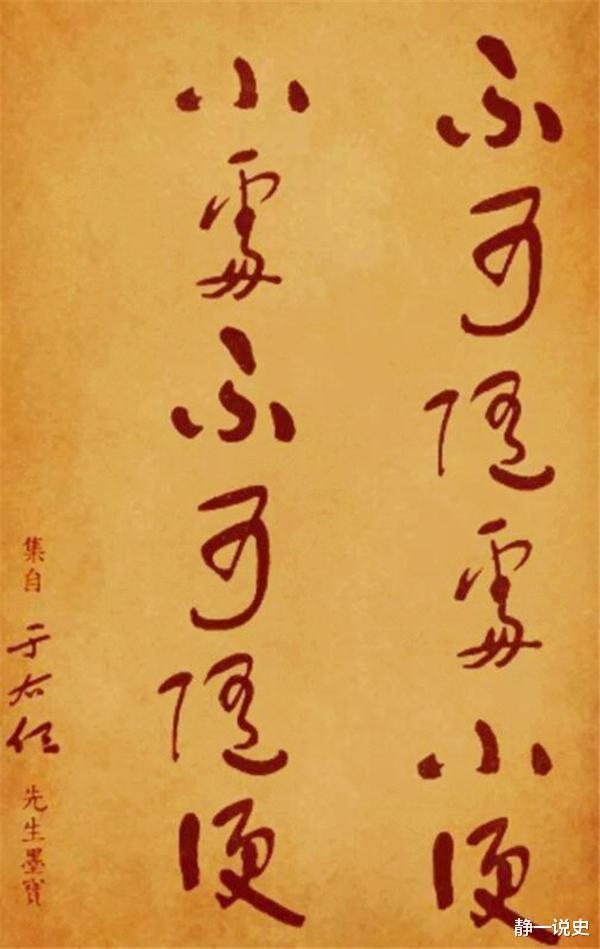 不可随處小便
小處不可随便
集自于右任先生墨寶
静一说史